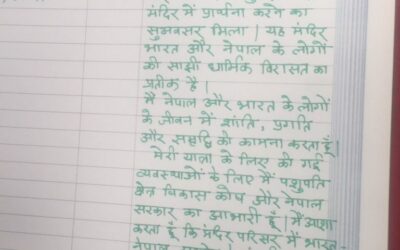 मंदिर में प्रार्थना करने का
सुअवसर मिला। यह मंदिर
भारत और नेपाल के लोगों
की साझी धार्मिक विरासत का
प्रतीक है।
मैं नेपाल और भारत के लोगों
के जीवन में शांति, प्रगति
और समृद्धि की कामना करता हूँ।
मेरी यात्रा के लिए की गई
व्यवस्थाओं के लिए मैं पशुपति
क्षेत्र विकास कोष और नेपाल
सरकार का आभारी हूँ। मैं आशा
करता हूँ कि मंदिर परिसर में भारत
नेपाल